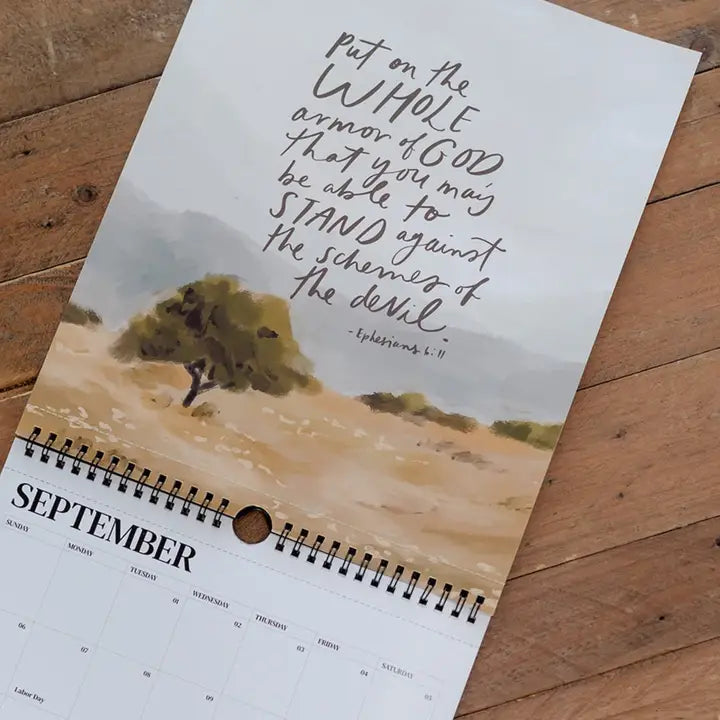 Put on the
WHOLE
armor of GOD
that you may
be able to
STAND against
the schemes of
the devil.
- Ephesians 6:11
SEPTEMBER
SUNDAY MONDAY TUESDAY WEDNESDAY THURSDAY FRIDAY SATURDAY
01 02 03 04 05
06 07 08 09
Labor Day